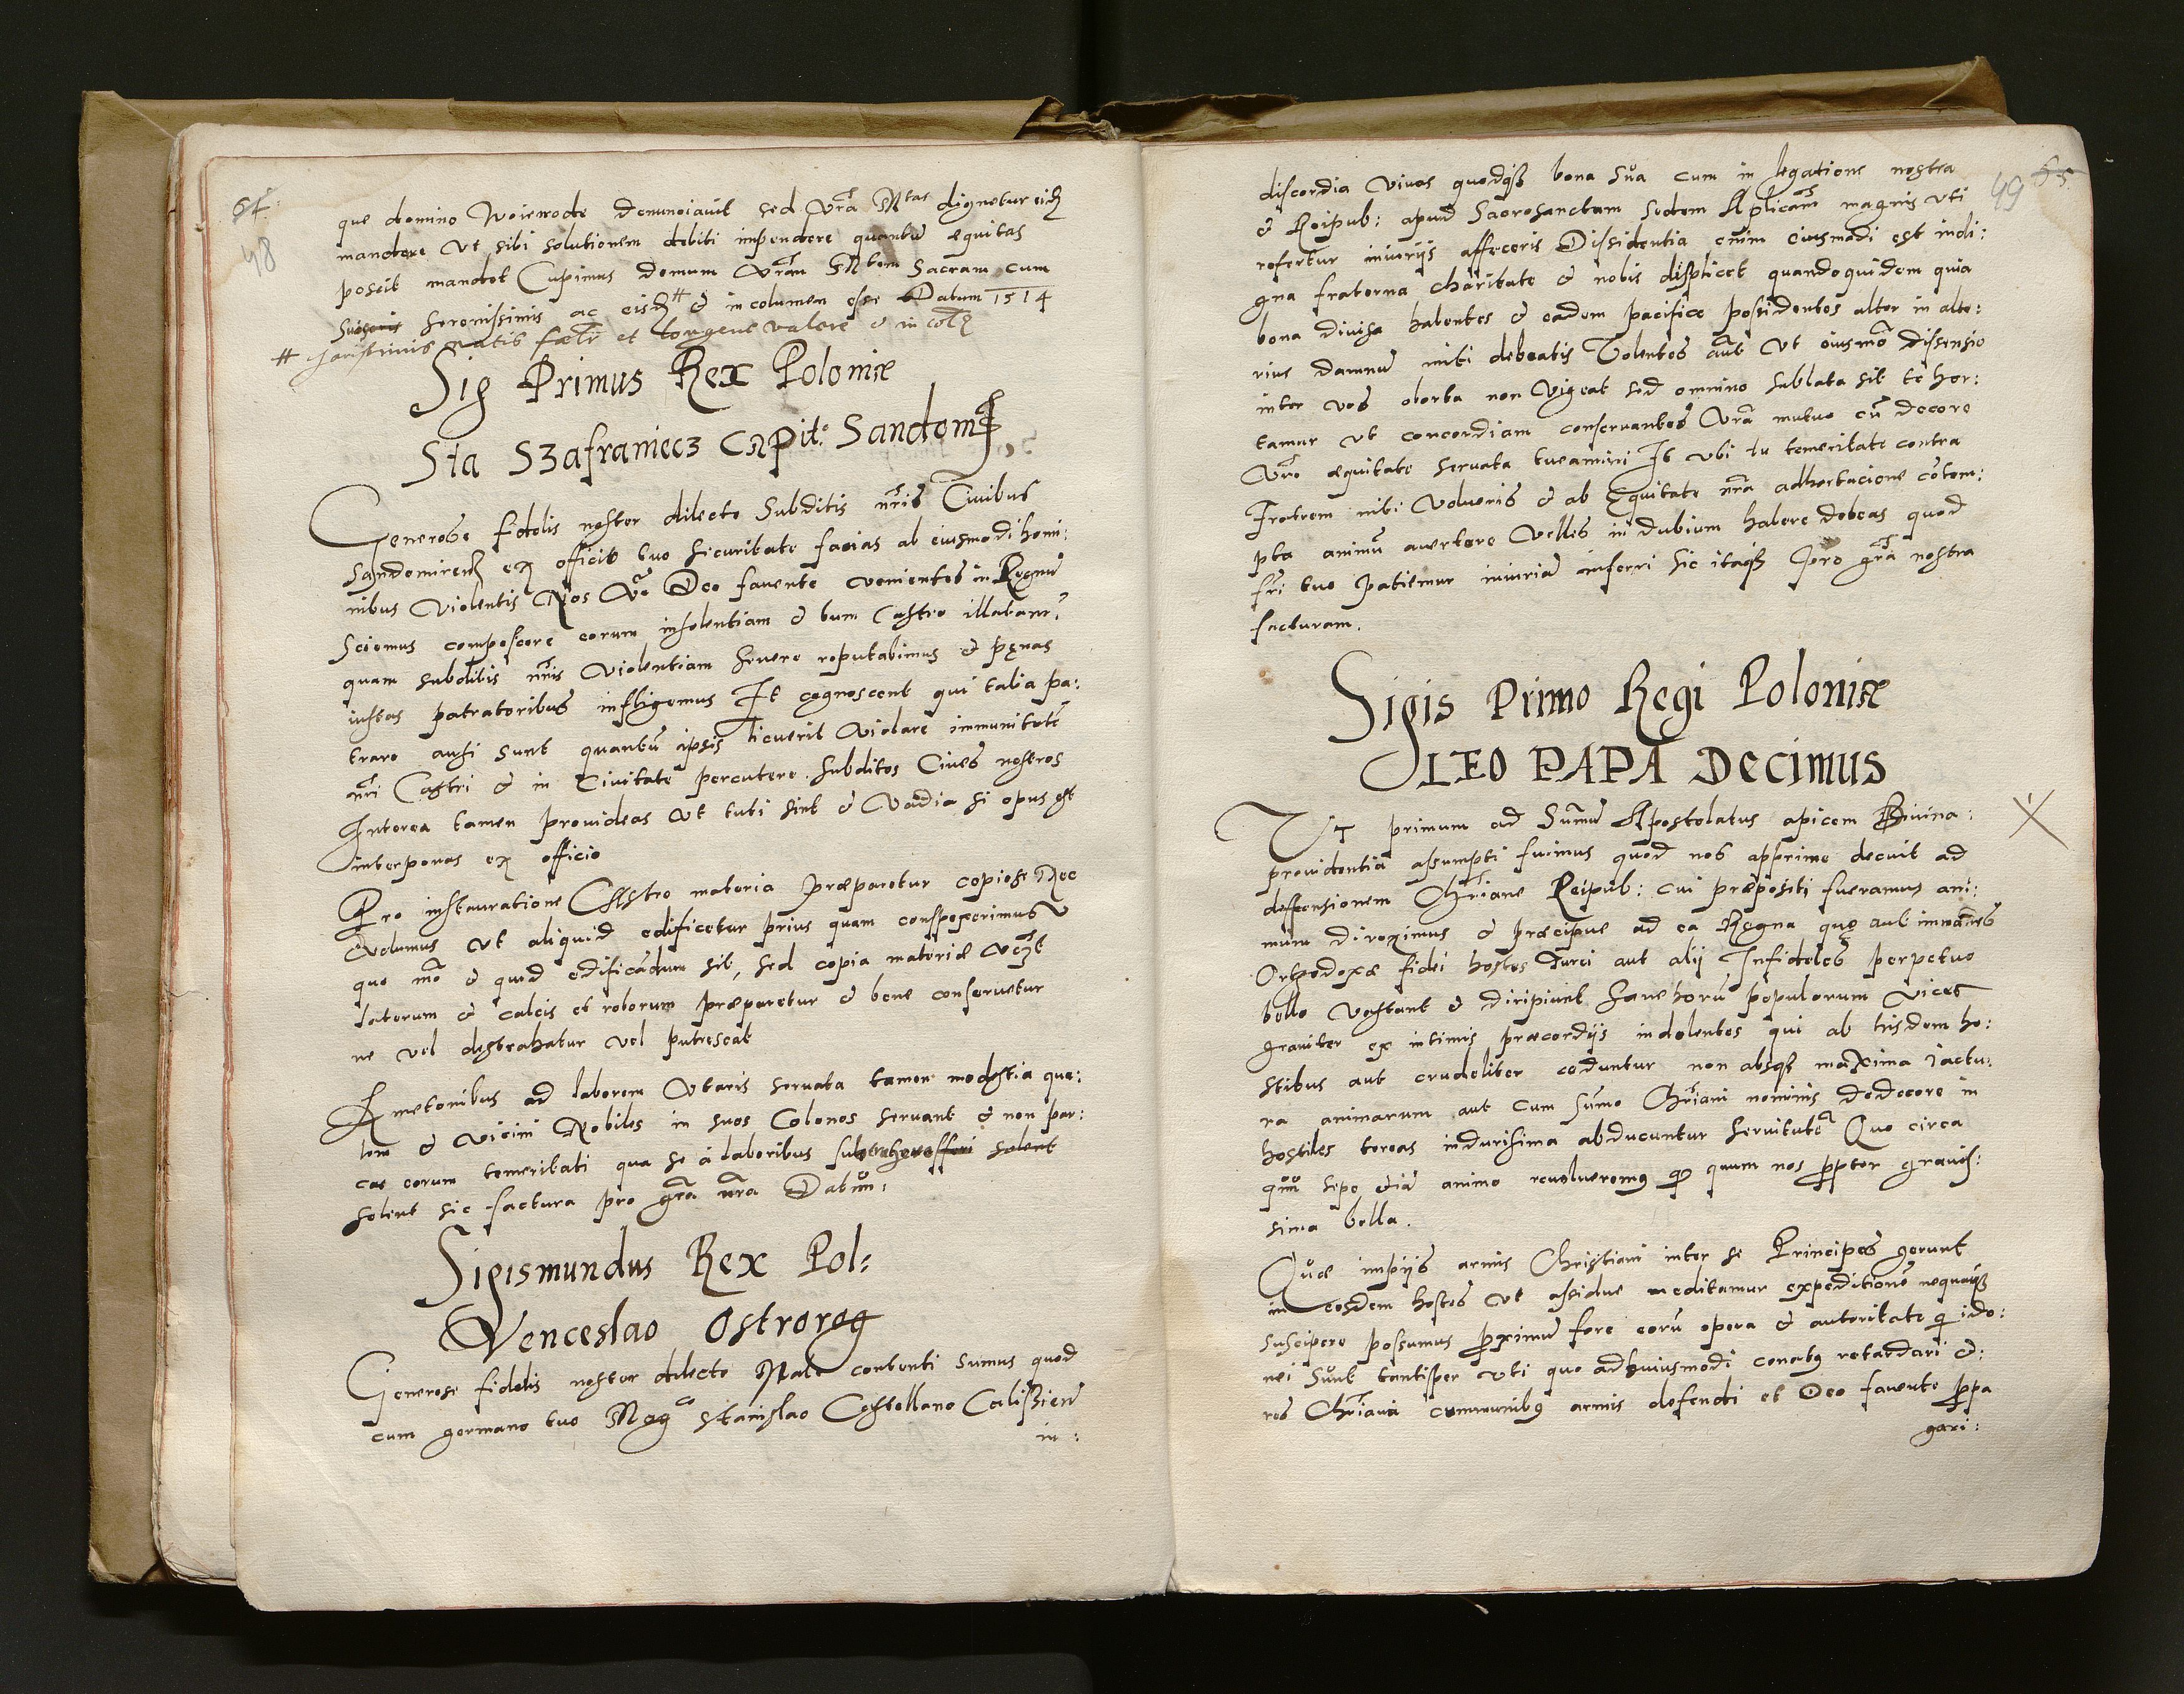 48
que domino Woiewode denunciavit sed Vrā Mtas dignetur eidē
mandare Vt sibi solutionem debiti inpendere quantū æquitas
poscit mandet Cupimus demum Vrām Mtem Sacram cum
serenissimis ac eisdē # & incolumem esse Datum 1514
# charissimis natis et longeue valere &
Sig Primus Rex Poloniæ
Sta Szafraniecz Capit: Sandom
Generose fidelis noster dilecte Subditis nr̄is Ciuibus
Sandomirien ex officio tuo securitate facias ab eiusmodi homi:
nibus Violentis Nos Vō Deo favente venientes in Regnū
Sciemus compescere eorum insolentiam & tum Castro illatam
quam subditis nr̄is Violentiam Severe reputabimus & pęnas
iustas patratoribus infligemus Et cognoscent qui talia pa:
trare ausi sunt quantū ipsis licuerit Violare immunitatē
nr̄i Castri & in Ciuitate percutere Subditos Ciues nostros
Interea tamen prouideas Vt tuti sint & Vadia si opus est
interponas ex officio
Pro instauratione Castro materia præparetur copiose Nec
Volumus Vt aliquid edificetur prius quam conspexerimus
quo mō & quid edificādum sit, sed copia materiæ
laterum & calcis et roborum præparetur & bene conservetur
ne vel distrahatur vel putrescat
Kmetonibus ad laborem Vtaris servata tamen modestia qua:
lem & vicini Nobiles in suos Colonos servant & non par:
cas eorum temeritati qua se à laboribus solent
solent sic factura pro gr̄a nr̄a Datum:
Sigismundus Rex Pol:
Venceslao Ostrorog
Generose fidelis noster dilecte Male contenti sumus quod
cum germano tuo Magco Stanislao Castellano Calissien
in:
49 65
discordia Viuas quodq3 bona Sua cum in legatione nostra
& Reipub: apud Sacrosanctam Sedem Aplicam magnis vti
refertur iniuriis affeceris Dissidentia enim eiusmodi est indi:
gna fraterna charitate & nobis displicet quandoquidem quia
bona diuisa habentes & eadem pacifice possidentes alter in alte:
rius damnū niti debeatis Volentes aūt Vt eiusmō dissensio
inter vos oborta non Vigeat sed omnino sublata sit te hor:
tamur vt concordiam conseruantes Vrā mutuo cū decore
Vr̄o æquitate servata tueamini Et vbi tu temeritate contra
Fratrem niti Volueris & ab Equitate nr̄a adhortacione cōtem:
pta animū avertere Velles in dubium habere debeas quod
fr̄i tuo patiemur iniuriā inferri Sic itaq3 pro gr̄a nostra
facturam.
Sigis Primo Regi Poloniæ
LEO PAPA Decimus
VT primum ad Sūmū Apostolatus apicem Diuina:
prouidentia assumpti fuimus quod nos apprime decuit ad
deffensionem Chr̄iane Reipub: cui præpositi fueramus ani:
mum direximus & præcipue ad ea Regna quę aut immanes
Orthodoxæ fidei hostes Turci aut alij Infideles perpetuo
bello Vastant & diripiunt Sane horū populorum vicē
grauiter ex intimis præcordijs indolentes qui ab hisdem ho:
stibus aut crudeliter ceduntur non absq3 maxima iactu:
ra animarum aut cum sūmo Chr̄iani nominis dedecore in
hostiles terras in durissima abducuntur Servitutē Quo circa
sepe etiā animo revolveremus quum nos propter gravis:
sima bella.
Quæ impijs armis Christiani inter se Principes gerunt
in eosdem hostes Vt assidue meditamur expeditionē nequaq3
suscipere possumus fore eorū opera & autoritate q ido:
nei Sunt tantisper vti quo ad huiusmodi conatus retardari &:
res Chr̄iana communibus armis defendi et Deo favente propa
gari: